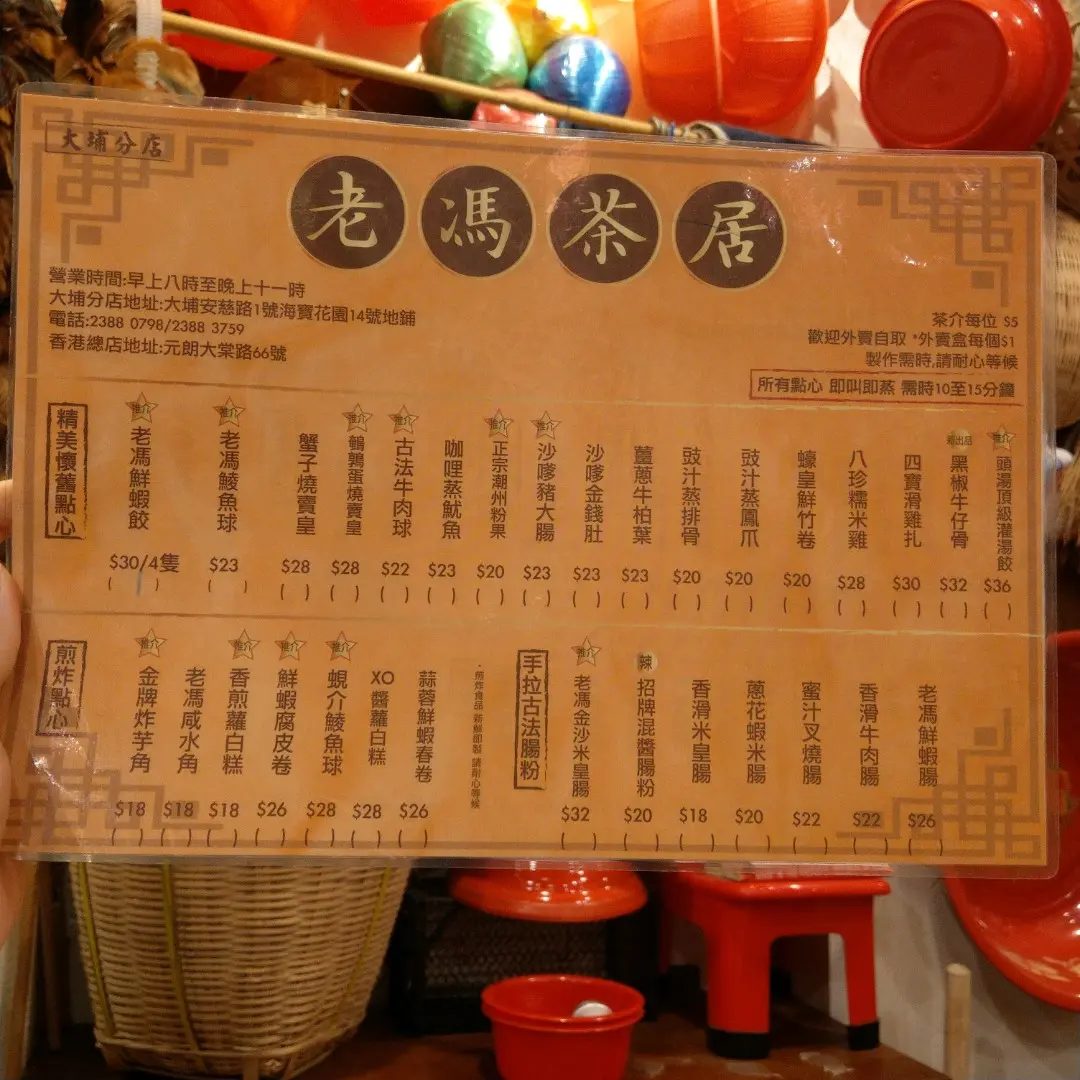 大埔分店
老馮茶居
營業時間:早上八時至晚上十一時
大埔分店地址:大埔安慈路1號海寶花園14號地鋪
電話:2388 0798/2388 3759
香港總店地址:元朗大棠路66號
茶介每位 $5
歡迎外賣自取 *外賣盒每個$1
製作需時,請耐心等候
所有點心 即叫即蒸 需時10至15分鐘
精美懷舊點心
推介 老馮鮮蝦餃 $30/4隻 ( )
推介 老馮鯪魚球 $23 ( )
蟹子燒賣皇 $28 ( )
推介 鵪鶉蛋燒賣皇 $28 ( )
推介 古法牛肉球 $22 ( )
咖哩蒸魷魚 $23 ( )
推介 正宗潮州粉果 $20 ( )
推介 沙嗲豬大腸 $23 ( )
沙嗲金錢肚 $23 ( )
薑蔥牛柏葉 $23 ( )
豉汁蒸排骨 $20 ( )
豉汁蒸鳳爪 $20 ( )
蠔皇鮮竹卷 $20 ( )
八珍糯米雞 $28 ( )
四寶滑雞扎 $30 ( )
新出品 黑椒牛仔骨 $32 ( )
推介 頭湯頂級灌湯餃 $36 ( )
煎炸點心
推介 金牌炸芋角 $18 ( )
老馮咸水角 $18 ( )
推介 香煎蘿白糕 $18 ( )
推介 鮮蝦腐皮卷 $26 ( )
推介 蜆介鯪魚球 $28 ( )
XO醬蘿白糕 $28 ( )
蒜蓉鮮蝦春卷 $26 ( )
·煎炸食品 新鮮即製 請耐心等候
手拉古法腸粉
推介 老馮金沙米皇腸 $32 ( )
辣 招牌混醬腸粉 $20 ( )
香滑米皇腸 $18 ( )
蔥花蝦米腸 $20 ( )
蜜汁叉燒腸 $22 ( )
香滑牛肉腸 $22 ( )
老馮鮮蝦腸 $26 ( )